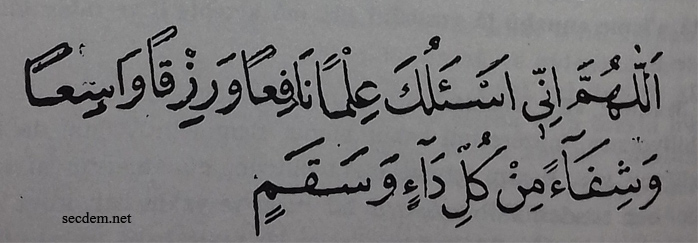 اَللّٰهُمَّ اِنِّى اَسْـَٔلُكَ عِلْمًا نَافِعًا وَرِزْقًا وَاسِعًا
وَشِفَٓاءً مِنْ كُلِّ دَٓاءٍ وَسَقَمٍ
secdem.net